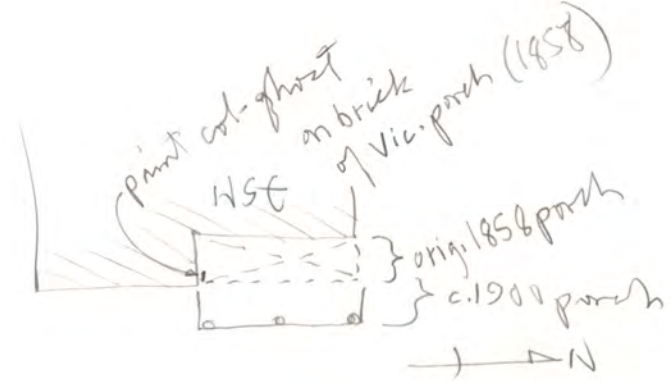 paint col-ghost
on brick
of Vic. porch (1858)
HSE
orig. 1858 porch
c.1900 porch
N